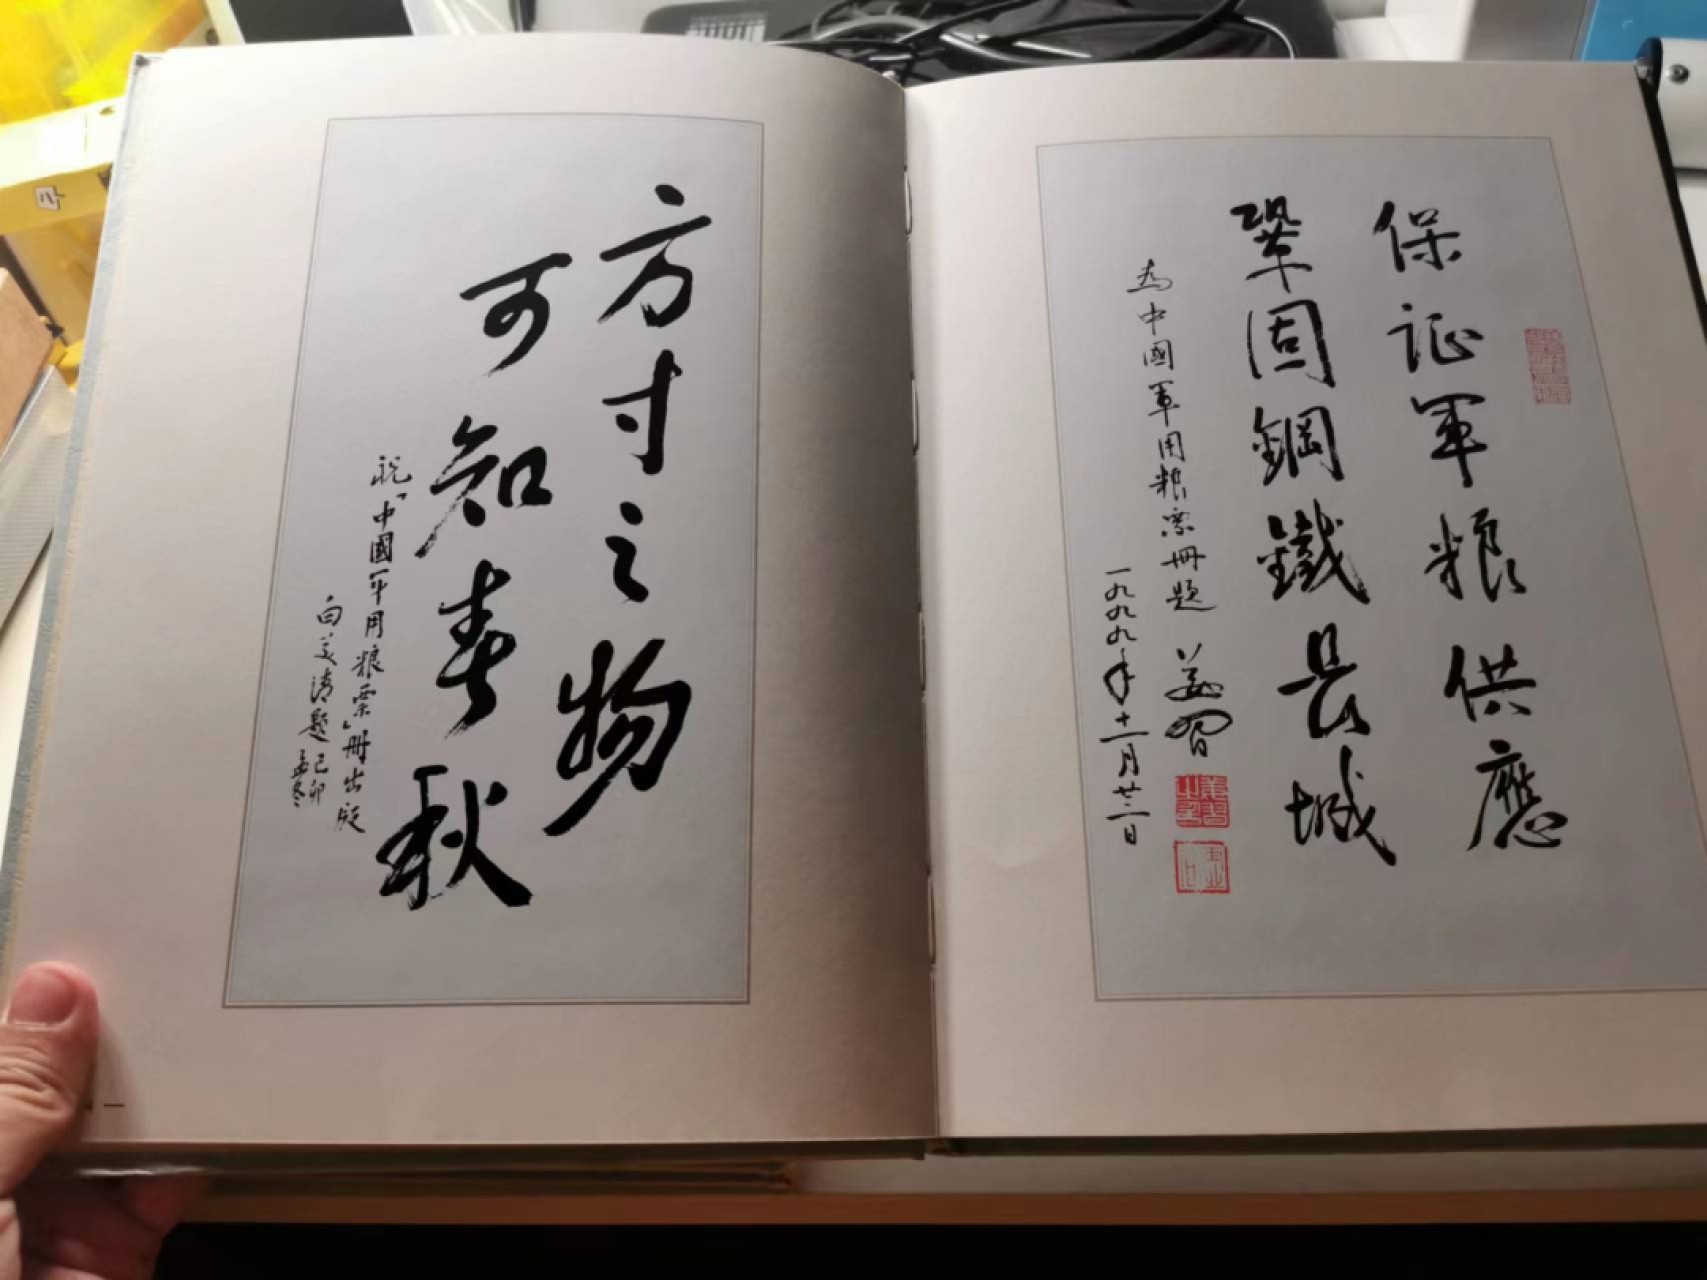 方寸之物
可知春秋
祝「中國军用粮票」册出版
白美清题
己卯
孟冬
保证军粮供應
巩固鋼鐵長城
为中國軍用粮票册题
姜习
一九九九年十一月廿二日